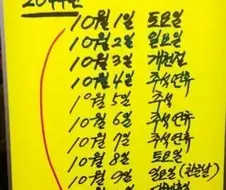 10월 1일 토요일
10월 2일 일요일
10월 3일 개천절
10월 4일 추석연휴
10월 5일 추석
10월 6일 추석연휴
10월 7일 추석연휴
10월 8일 토요일
10월 9일 일요일 (한글날)